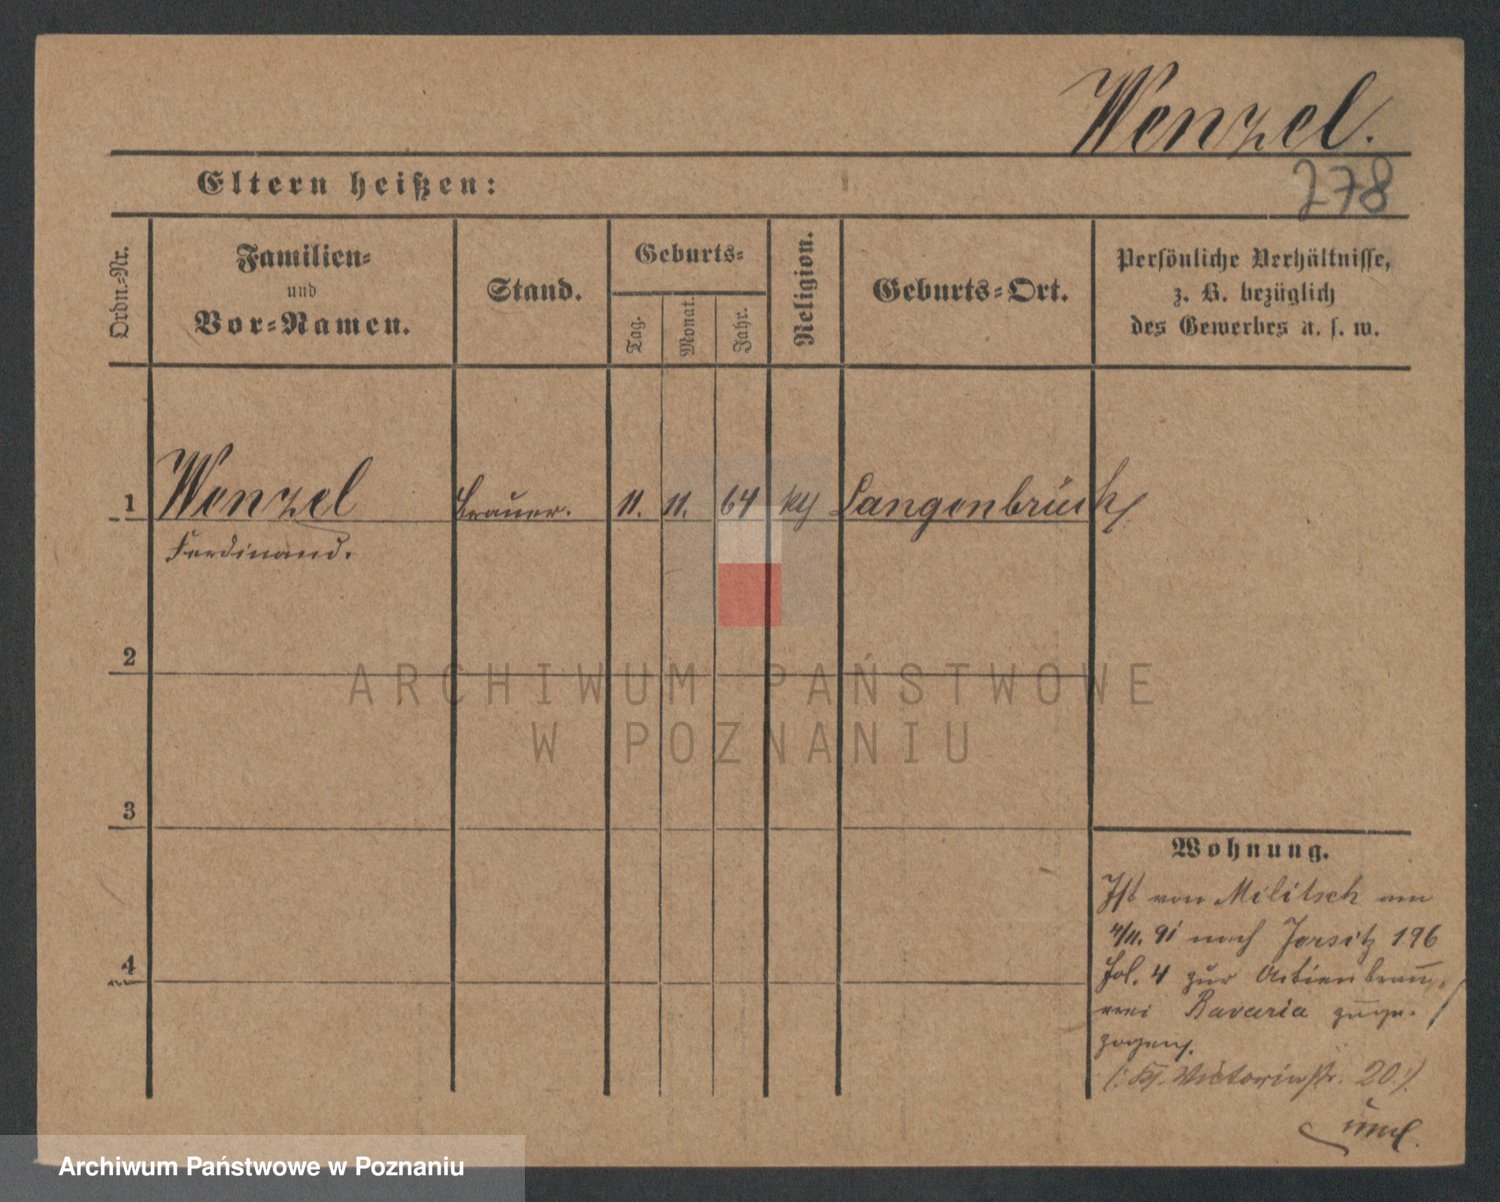 Wenzel.
Eltern heißen:
278
Ordn.-Nr.
Familien-
und
Vor-Namen.
Stand.
Geburts-
Tag.
Monat.
Jahr.
Religion.
Geburts-Ort.
Persönliche Verhältnisse,
z. B. bezüglich
des Gewerbes u. s. w.
1
Wenzel
Ferdinand.
Brauer.
11.
11.
64
Langenbrück
2
ARCHIWUM PAŃSTWOWE
W POZNANIU
3
4
Wohnung.
Ist von Militsch am
4/11. 91 nach Jersitz 196
Fol. 4 zur Actienbrau-
erei Bavaria zuge-
zogen.
Victoriastr. 20
Archiwum Państwowe w Poznaniu